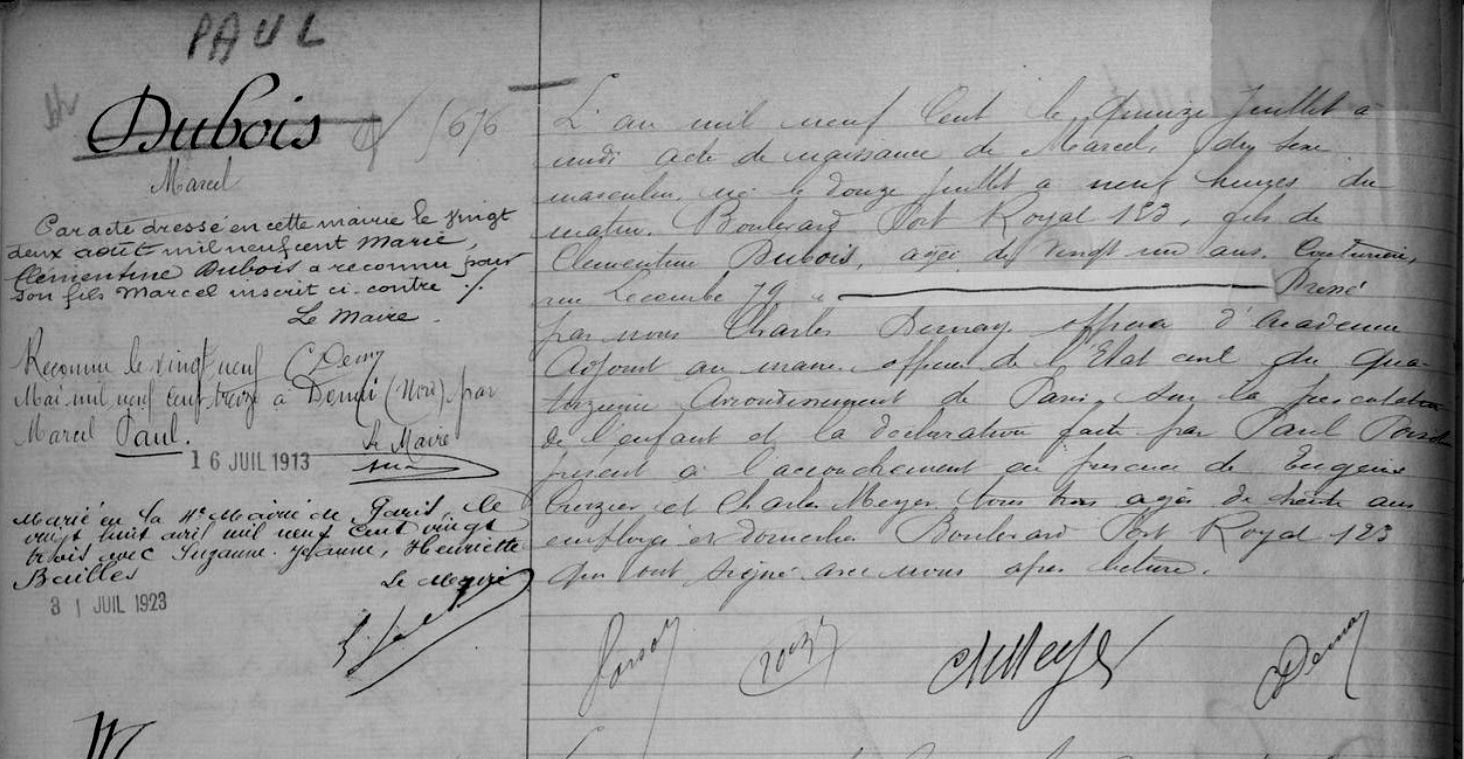 PAUL
Dubois
5676
Marcel
Par acte dressé en cette mairie le vingt
deux août mil neuf cent Marie,
Clémentine Dubois a reconnu pour
son fils Marcel inscrit ci-contre ./.
Le Maire.
CDemy
Reconnu le vingt neuf
Mai mil neuf cent treize à (Nord) par
Marcel Paul.
Le Maire
16 JUIL 1913
Marié en la 4e Mairie de Paris, le
vingt huit avril mil neuf cent vingt
trois avec Suzanne, Jeanne, Henriette
Bailles
Le Maire
31 JUIL 1923
L'an mil neuf Cent le Quinze Juillet à
midi acte de naissance de Marcel, du sexe
masculin, né le douze juillet à neuf heures du
matin, Boulevard Port Royal 123, fils de
Clementine Dubois, agée de vingt un ans, Couturière,
rue Lecourbe 79 Dressé
par nous Charles Dernay officier d'Academie
Adjoint au maire, officier de l'Etat civil du Qua-
torzieme Arrondissement de Paris, sur la presentation
de l'enfant et la declaration faite par Paul
present à l'accouchement en presence de Eugene
Crozier et Charles Meyer, tous trois agés de trente ans
employés et domiciliés Boulevard Port Royal 123
qui ont signé avec nous apres lecture.
ChMeyer
CDernay